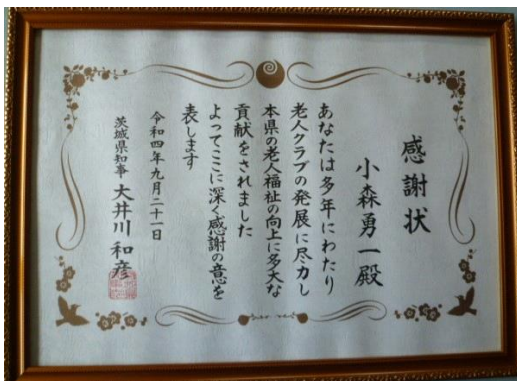 感謝状
小森勇一殿
あなたは多年にわたり
老人クラブの発展に尽力し
本県の老人福祉の向上に多大な
貢献をされました
よってここに深く感謝の意を
表します
令和四年九月二十一日
茨城県知事 大井川和彦